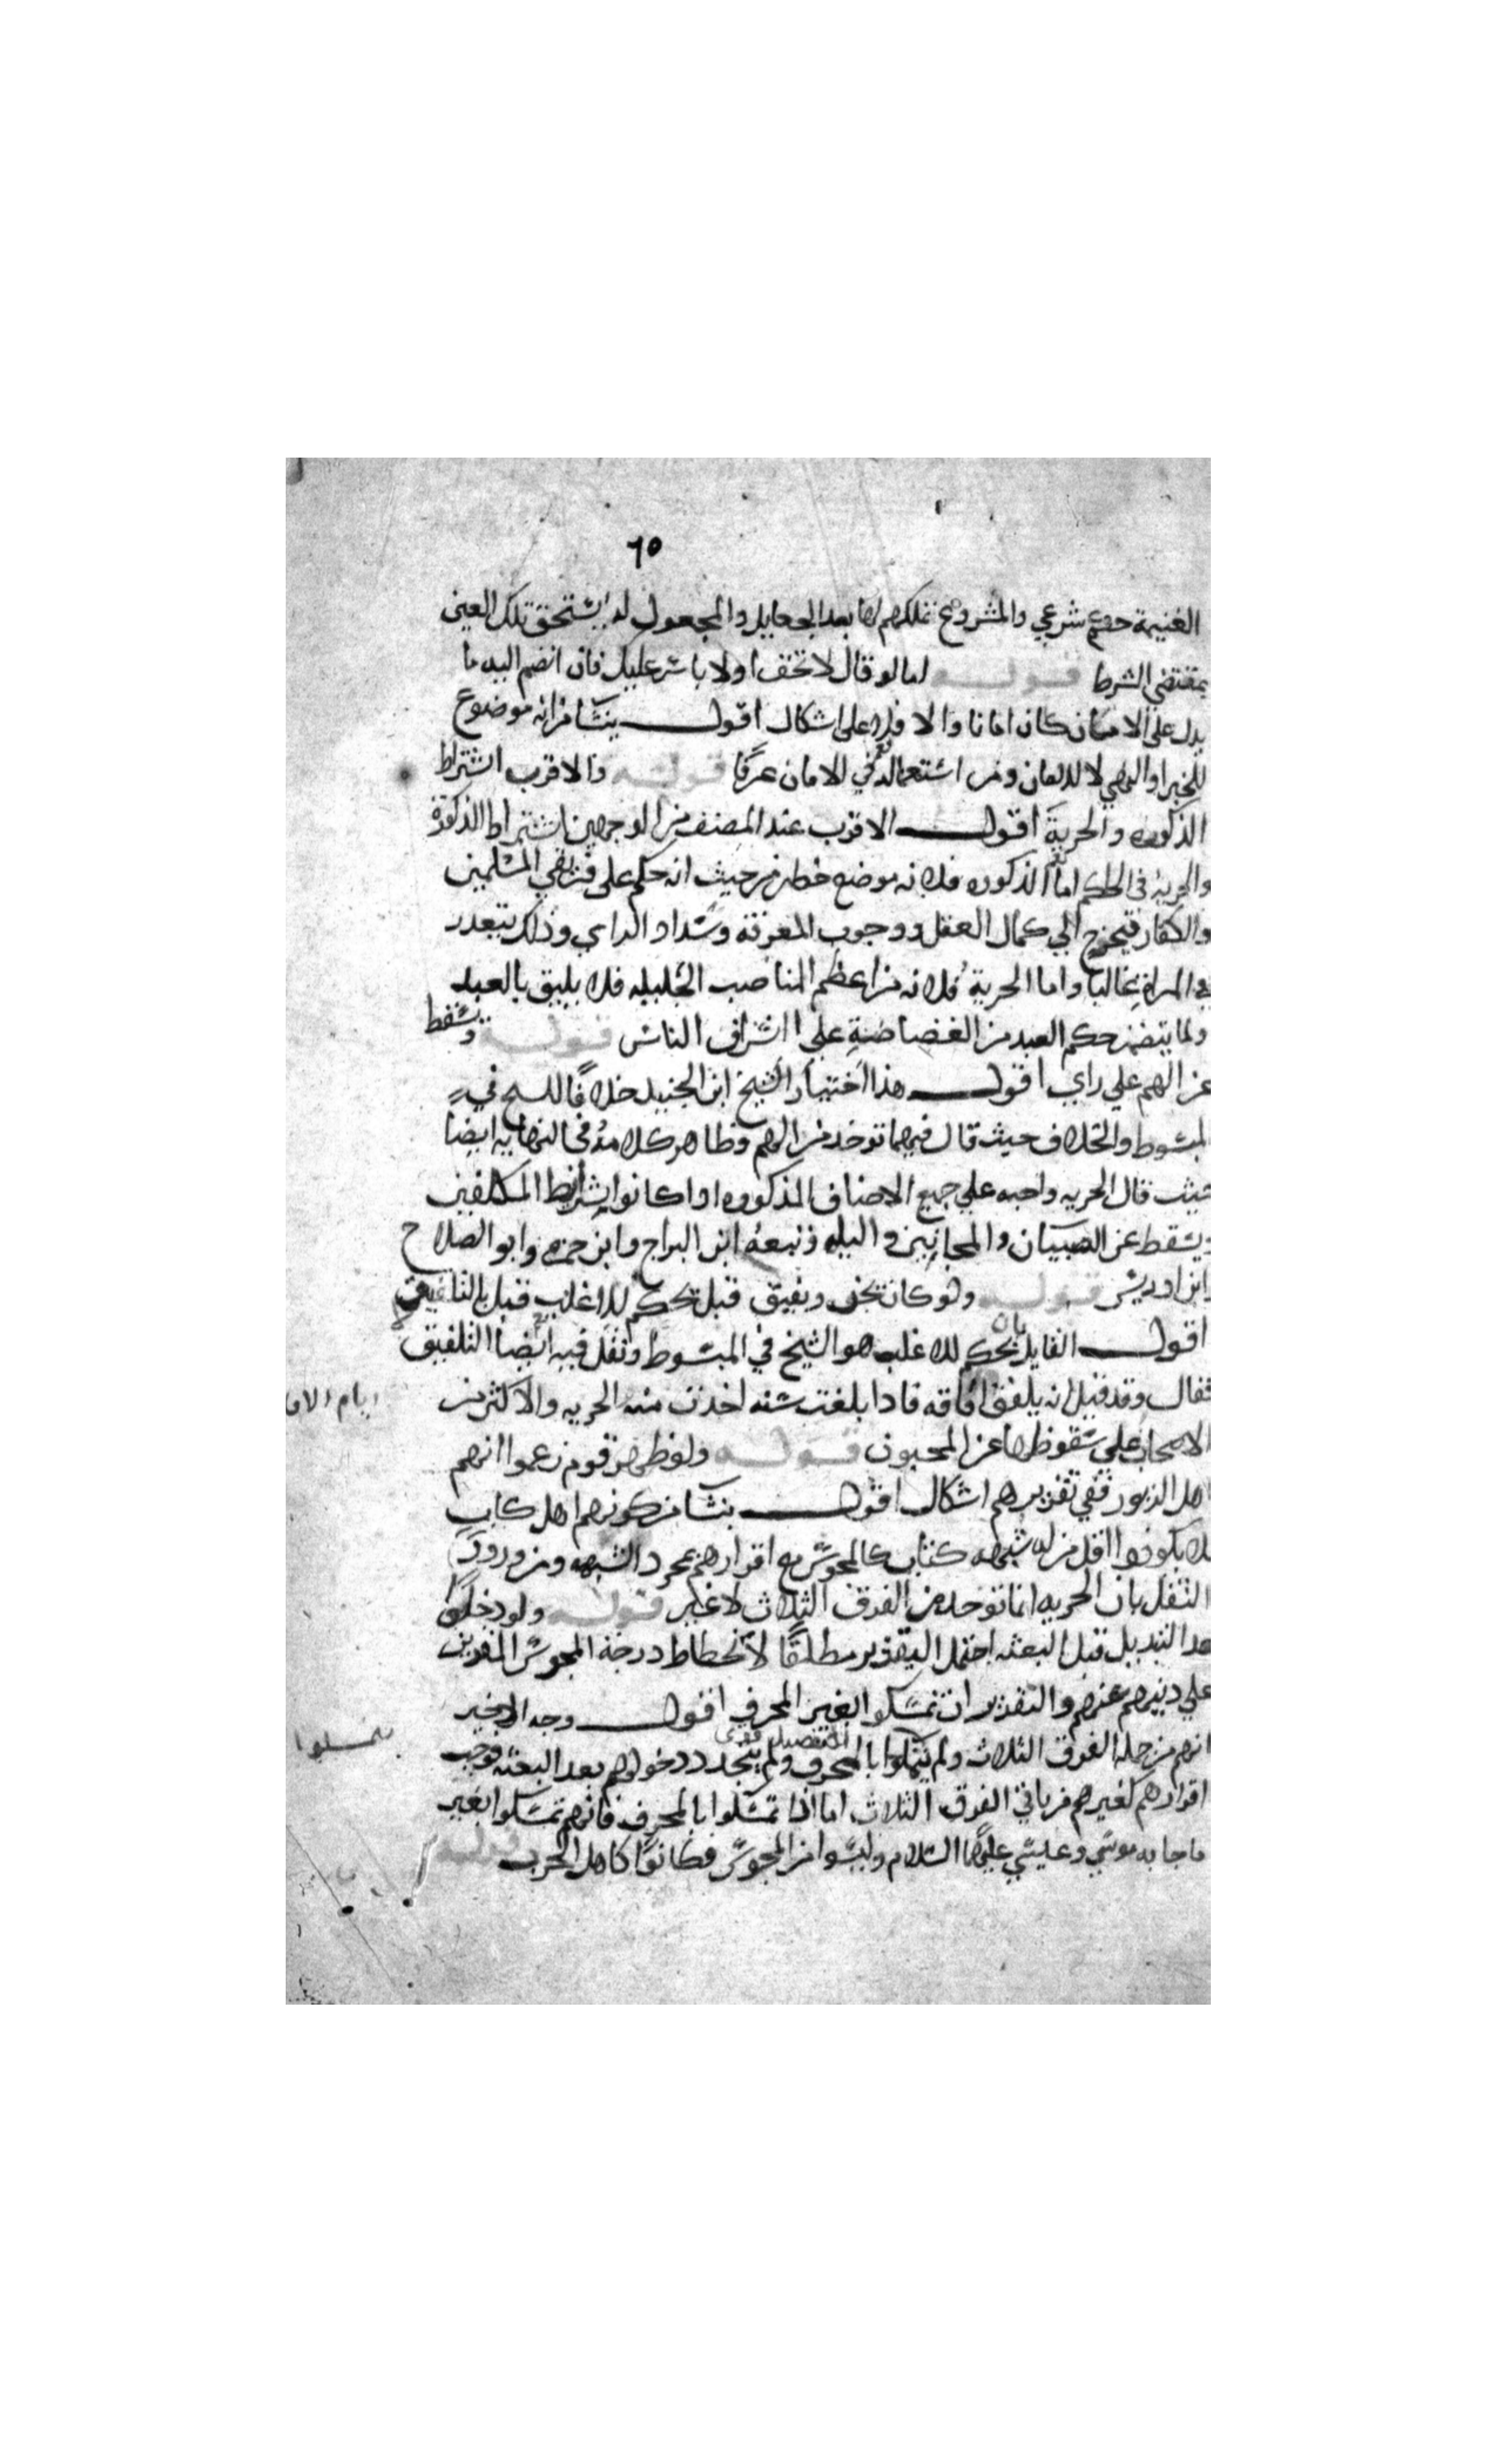 ٦٥
الغنيمة حكم شرعي والمشروع تملكهم لها بعد الجعايل والمجعول له يستحق تلك العين
بمقتضى الشرط قوله اما لو قال لا تخف او لا باس عليك فان انضم اليه ما
يدل على الامان كان امانا والا فلا على اشكال اقول ينشا من انه موضوع
للخبر او النهي لا للامان ومن استعماله في الامان عرفا قوله والاقرب اشتراط
الذكوره والحرية اقول الاقرب عند المصنف من الوجهين اشتراط الذكورة
والحرية في الحاكم اما الذكوره فلانه موضع خطر من حيث انه حكم على فريقي المسلمين
والكفار فيحوج الي كمال العقل ووجوب المعرفة وسداد الراي وذلك يتعذر
في المراة غالبا واما الحرية فلانه من اعظم المناصب الجليله فلا يليق بالعبد
ولما يتضمن حكم العبد من الغضاضة على اشراف الناس قوله ويسقط
عن الهم علي راي اقول هذا اختيار الشيخ ابن الجنيد خلافا للشيخ في
المبسوط والخلاف حيث قال فيهما توخذ من الهم وظاهر كلامه في النهايه ايضا
حيث قال الجزيه واجبه علي جميع الاصناف المذكوره اذا كانوا بشرايط المكلفين
ويسقط عن الصبيان والمجانين والبله وتبعه ابن البراج وابن حمزه وابو الصلاح
وابن ادريس قوله ولو كان يجن ويفيق قيل يحكم للاغلب قيل بالتلفيق
اقول القايل بان يحكم للاغلب هو الشيخ في المبسوط ونقل فيه ايضا التلفيق
فقال وقد قيل انه يلفق افاقه فاذا بلغت سنه اخذت منه الجزيه والاكثر من
ايام الافا
الاصحاب على سقوطها عن المجنون قوله ولو ظهر قوم زعموا انهم
اهل الزبور ففي تقريرهم اشكال اقول ينشا من كونهم اهل كتاب
فلا يكونوا اقل من له شبهه كتاب كالمجوس مع اقرارهم بمجرد الشبهه ومن ورود
النقل بان الجزيه انما توخذ من الفرق الثلاث لا غير قوله ولو دخلوا
هذا التبديل قبل البعثه احتمل التقرير مطلقا لانحطاط درجة المجوس المقرين
علي دينهم عنهم والتقرير ان تمسكوا بغير المحرف اقول وجه الاخير
انهم من جمله الفرق الثلاث ولم يتمسكوا بالمحرف ولم يتجدد دخولهم بعد البعثه فوجب
اقرارهم كغيرهم من باقي الفرق الثلاث اما اذا تمسكوا بالمحرف فانهم تمسكوا بغير
ما جا به موسي وعيسي عليهما السلام وليسوا من المجوس فكانوا كاهل الحرب قوله